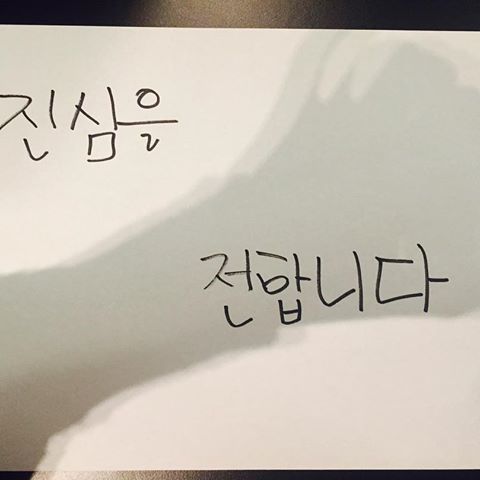 진심을
전합니다